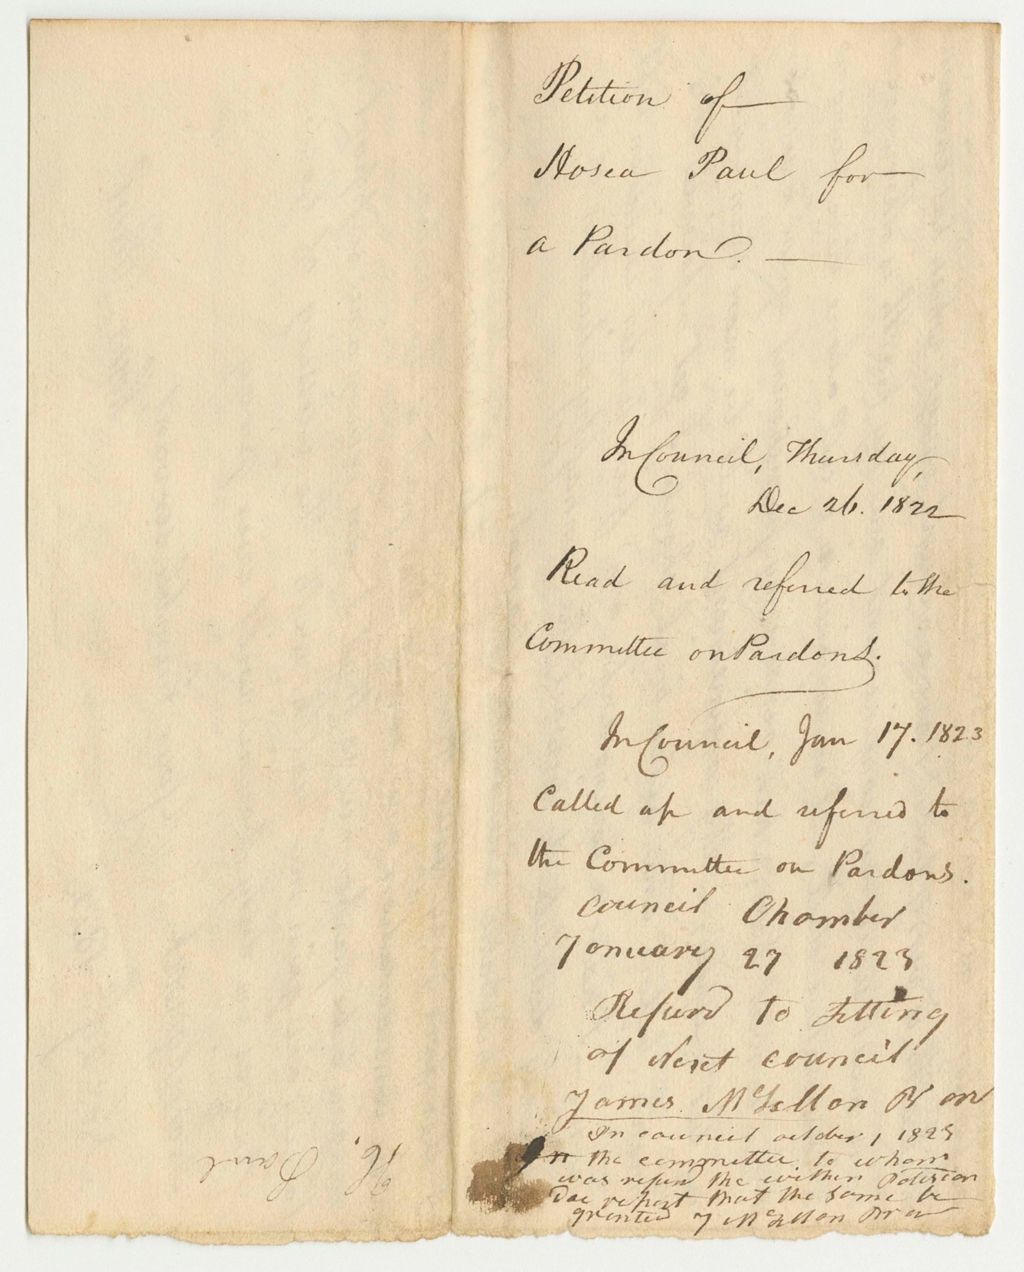 Petition of
Hosea Paul for
a Pardon.
In Council, Thursday,
Dec 26. 1822
Read and referred to the
Committee on Pardons.
In Council, Jan 17. 1823
Called up and referred to
the Committee on Pardons.
Council Chamber
January 27 1823
Refurd to Sitting
of Next Council
James McLellan
In council october 1 1823
the committee to whom
was refurd the within Petision
Doe report that the same be
granted J McLellan
H. Paul